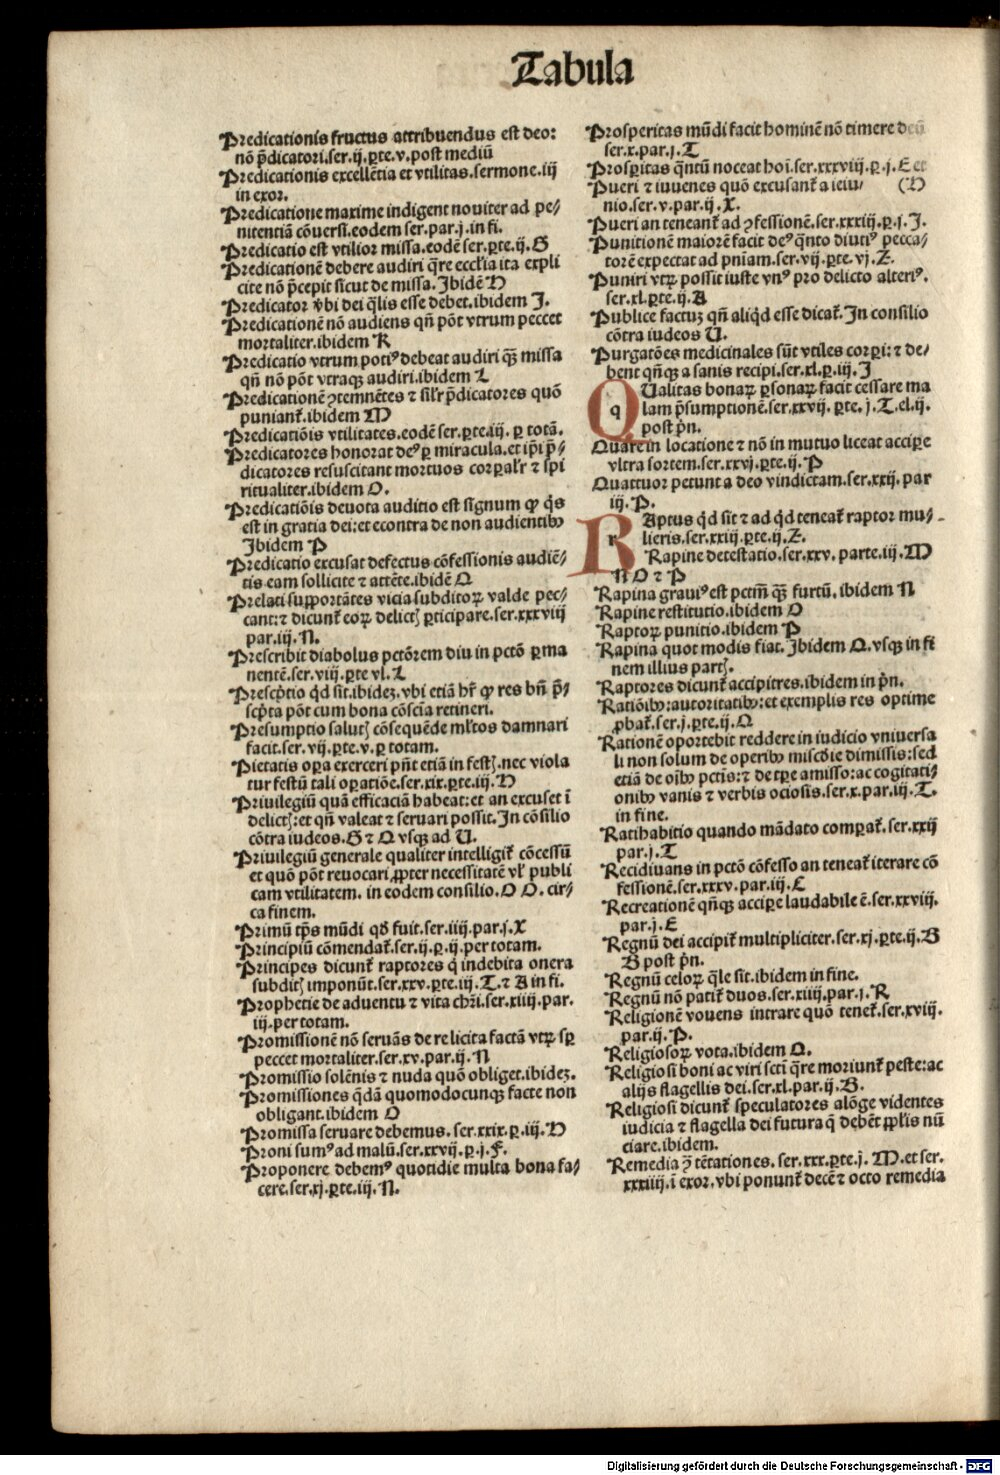 Tabula
Predicationis fructus attribuendus est deo:
nõ p̃dicatori.ser.ij.ꝑte.v.post mediũ
Predicationis excellẽtia et vtilitas.sermone.iij
in exor.
Predicatione maxime indigent nouiter ad pe⸗
nitentiã cõuersi.eodem ser.par.j.in fi.
Predicatio est vtilior missa.eodẽ ser.ꝑte.ij.G
Predicationẽ debere audiri q̃re eccl'ia ita expli
cite nõ p̃cepit sicut de missa.Ibidẽ H
Predicator v̾bi dei q̃lis esse debet.ibidem I.
Predicationẽ nõ audiens qñ põt vtrum peccet
mortaliter.ibidem K
Predicatio vtrum potiꝰ debeat audiri q̃ꝫ missa
qñ nõ põt vtraqꝫ audiri.ibidem L
Predicationẽ ꝯtemnẽtes ⁊ sil'r p̃dicatores quõ
puniant᷑.ibidem M
Predicatiõis vtilitates.eodẽ ser.ꝑte.iij. ꝑ totã.
Predicatores honorat deꝰ ꝑ miracula.et ip̃i p̃⸗
dicatores resuscitant mortuos corꝑal'r ⁊ spi
ritualiter.ibidem O.
Predicatiõis deuota auditio est signum ꝙ q̃s
est in gratia dei:et econtra de non audientibꝰ
Ibidem P
Predicatio excusat defectus cõfessionis audiẽ⸗
tis eam sollicite ⁊ attẽte.ibidẽ Q
Prelati supportãtes vicia subditoꝝ valde pec⸗
cant:⁊ dicunt᷑ eoꝝ delictꝭ ꝑticipare.ser.xxxviij
par.iij.N.
Prescribit diabolus pctõrem diu in pctõ ꝑma
nentẽ.ser.viij.ꝑte vl.L
Presc̃ptio q̃d sit.ibidеꝫ.vbi etiã hr̃ ꝙ res bñ p̃⸗
sc̃pta põt cum bona cõscĩa retineri.
Presumptio salutꝭ cõsequẽde ml'tos damnari
facit.ser.vij.ꝑte.v.ꝑ totam.
Pietatis oꝑa exerceri pñt etiã in festꝭ.nec viola
tur festũ tali oꝑatiõe.ser.xix.ꝑte.iij.H
Priuilegiũ quã efficaciã habeat:et an excuset ĩ
delictꝭ:et qñ valeat ⁊ seruari possit.In cõsilio
cõtra iudeos.G ⁊ Q vsqꝫ ad U.
Priuilegiũ generale qualiter intelligit᷑ cõcessũ
et quõ põt reuocari ꝓpter necessitatẽ vl' publi
cam vtilitatem. in eodem consilio.O O. cir⸗
ca finem.
Primũ tp̃s mũdi qð fuit.ser.iiij.par.j.X
Principiũ cõmendat᷑.ser.ij.ꝑ.ij.per totam.
Principes dicunt᷑ raptores q̃ indebita onera
subditꝭ imponũt.ser.xxv.ꝑte.iij.T.⁊ A in fi.
Prophetie de aduentu ⁊ vita chr̃i.ser.xiiij.par.
iij.per totam.
Promissionẽ nõ seruãs de re licita factã vtꝝ sꝑ
peccet mortaliter.ser.xv.par.ij.N
Promissio solẽnis ⁊ nuda quõ obliget.ibideꝫ.
Promissiones q̃dã quomodocunqꝫ facte non
obligant.ibidem O
Promissa seruare debemus. ser.xxix.ꝑ.iij.H
Proni sumꝰ ad malũ.ser.xxvij.ꝑ.j.F.
Proponere debemꝰ quotidie multa bona fa⸗
cere.ser.xj.ꝑte.iij.N.
Prosperitas mũdi facit hominẽ nõ timere deũ
ser.x.par.j.T
Prosꝑitas q̃ntũ noceat hoĩ.ser.xxxviij.ꝑ.j.E et
Pueri ⁊ iuuenes quõ excusant᷑ a ieiu⸗ (H
nio.ser.v.par.ij.X.
Pueri an teneant᷑ ad ꝯfessionẽ.ser.xxxiij.ꝑ.j.I.
Punitionẽ maiorẽ facit deꝰ q̃nto diutiꝰ pecca⸗
torẽ expectat ad pniam.ser.vij.ꝑte.vj.Z.
Puniri vtꝝ possit iuste vnꝰ pro delicto alteriꝰ.
ser.xl.ꝑte.ij.A
Publice factuꝫ qñ aliq̃d esse dicat᷑.In consilio
cõtra iudeos U.
Purgatões medicinales sũt vtiles corꝑi:⁊ de⸗
bent qñqꝫ a sanis recipi.ser.xl.ꝑ.iij.I
QUalitas bonaꝝ ꝑsonaꝝ facit cessare ma
lam p̃sumptionẽ.ser.xxvij. ꝑte. j.T.el.ij.
post pñ.
Quare in locatione ⁊ nõ in mutuo liceat acciꝑe
vltra sortem.ser.xxvj.ꝑte.ij.P
Quattuor petunt a deo vindictam.ser.xxij.par
iij.P.
RAptus q̃d sit ⁊ ad q̃d teneat᷑ raptor mu⸗
lieris.ser.xxiij.ꝑte.ij.Z.
Rapine detestatio.ser.xxv. parte.iij.M
N O ⁊ P
Rapina grauiꝰ est pctm̃ q̃ꝫ furtũ. ibidem N
Rapine restitutio.ibidem O
Raptoꝝ punitio.ibidem P
Rapina quot modis fiat. Ibidem Q.vsqꝫ in fi
nem illius partꝭ.
Raptores dicunt᷑ accipitres.ibidem in pñ.
Ratiõibꝰ:autoritatibꝰ:et exemplis res optime
ꝓbat᷑.ser.j.ꝑte.ij.Q
Rationẽ oportebit reddere in iudicio vniuersa
li non solum de operibꝰ miscd̾ie dimissis:sed
etiã de oĩbꝰ pctĩs:⁊ de tꝑe amisso:ac cogitati⸗
onibꝰ vanis ⁊ verbis ociosis.ser.x.par.iij.T.
in fine.
Ratihabitio quando mãdato comꝑat᷑.ser.xxij
par.j.T
Recidiuans in pctõ cõfesso an teneat᷑ iterare cõ
fessionẽ.ser.xxxv.par.iij.C
Recreationẽ qñqꝫ acciꝑe laudabile ẽ.ser.xxviij.
par.j.E
Regnũ dei accipit᷑ multipliciter.ser.xj.ꝑte.ij.B
B post pñ.
Regnũ celoꝝ q̃le sit.ibidem in fine.
Regnũ nõ patit᷑ duos.ser.xiiij.par.j.R
Religionẽ vouens intrare quõ tenet᷑.ser.xviij.
par.ij.P.
Religiosoꝝ vota.ibidem Q.
Religiosi boni ac viri scti q̃re moriunt᷑ peste:ac
alijs flagellis dei.ser.xl.par.ij.B.
Religiosi dicunt᷑ speculatores alõge videntes
iudicia ⁊ flagella dei futura q̃ debẽt ꝓpl'is nũ
ciare.ibidem.
Remedia ꝯ̃ tẽtationes. ser.xxx.ꝑte.j. M.et ser.
xxxiiij.ĩ exor.vbi ponunt᷑ decẽ ⁊ octo remedia
Digitalisierung gefördert durch die Deutsche Forschungsgemeinschaft - DFG